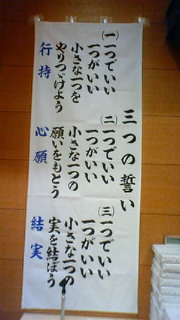 三つの誓い
(一)
一つでいい
一つがいい
小さな一つを
やりつゞけよう
行持
(二)
一つでいい
一つがいい
小さな一つの
願いをもとう
心願
(三)
一つでいい
一つがいい
小さな一つの
実を結ぼう
結実